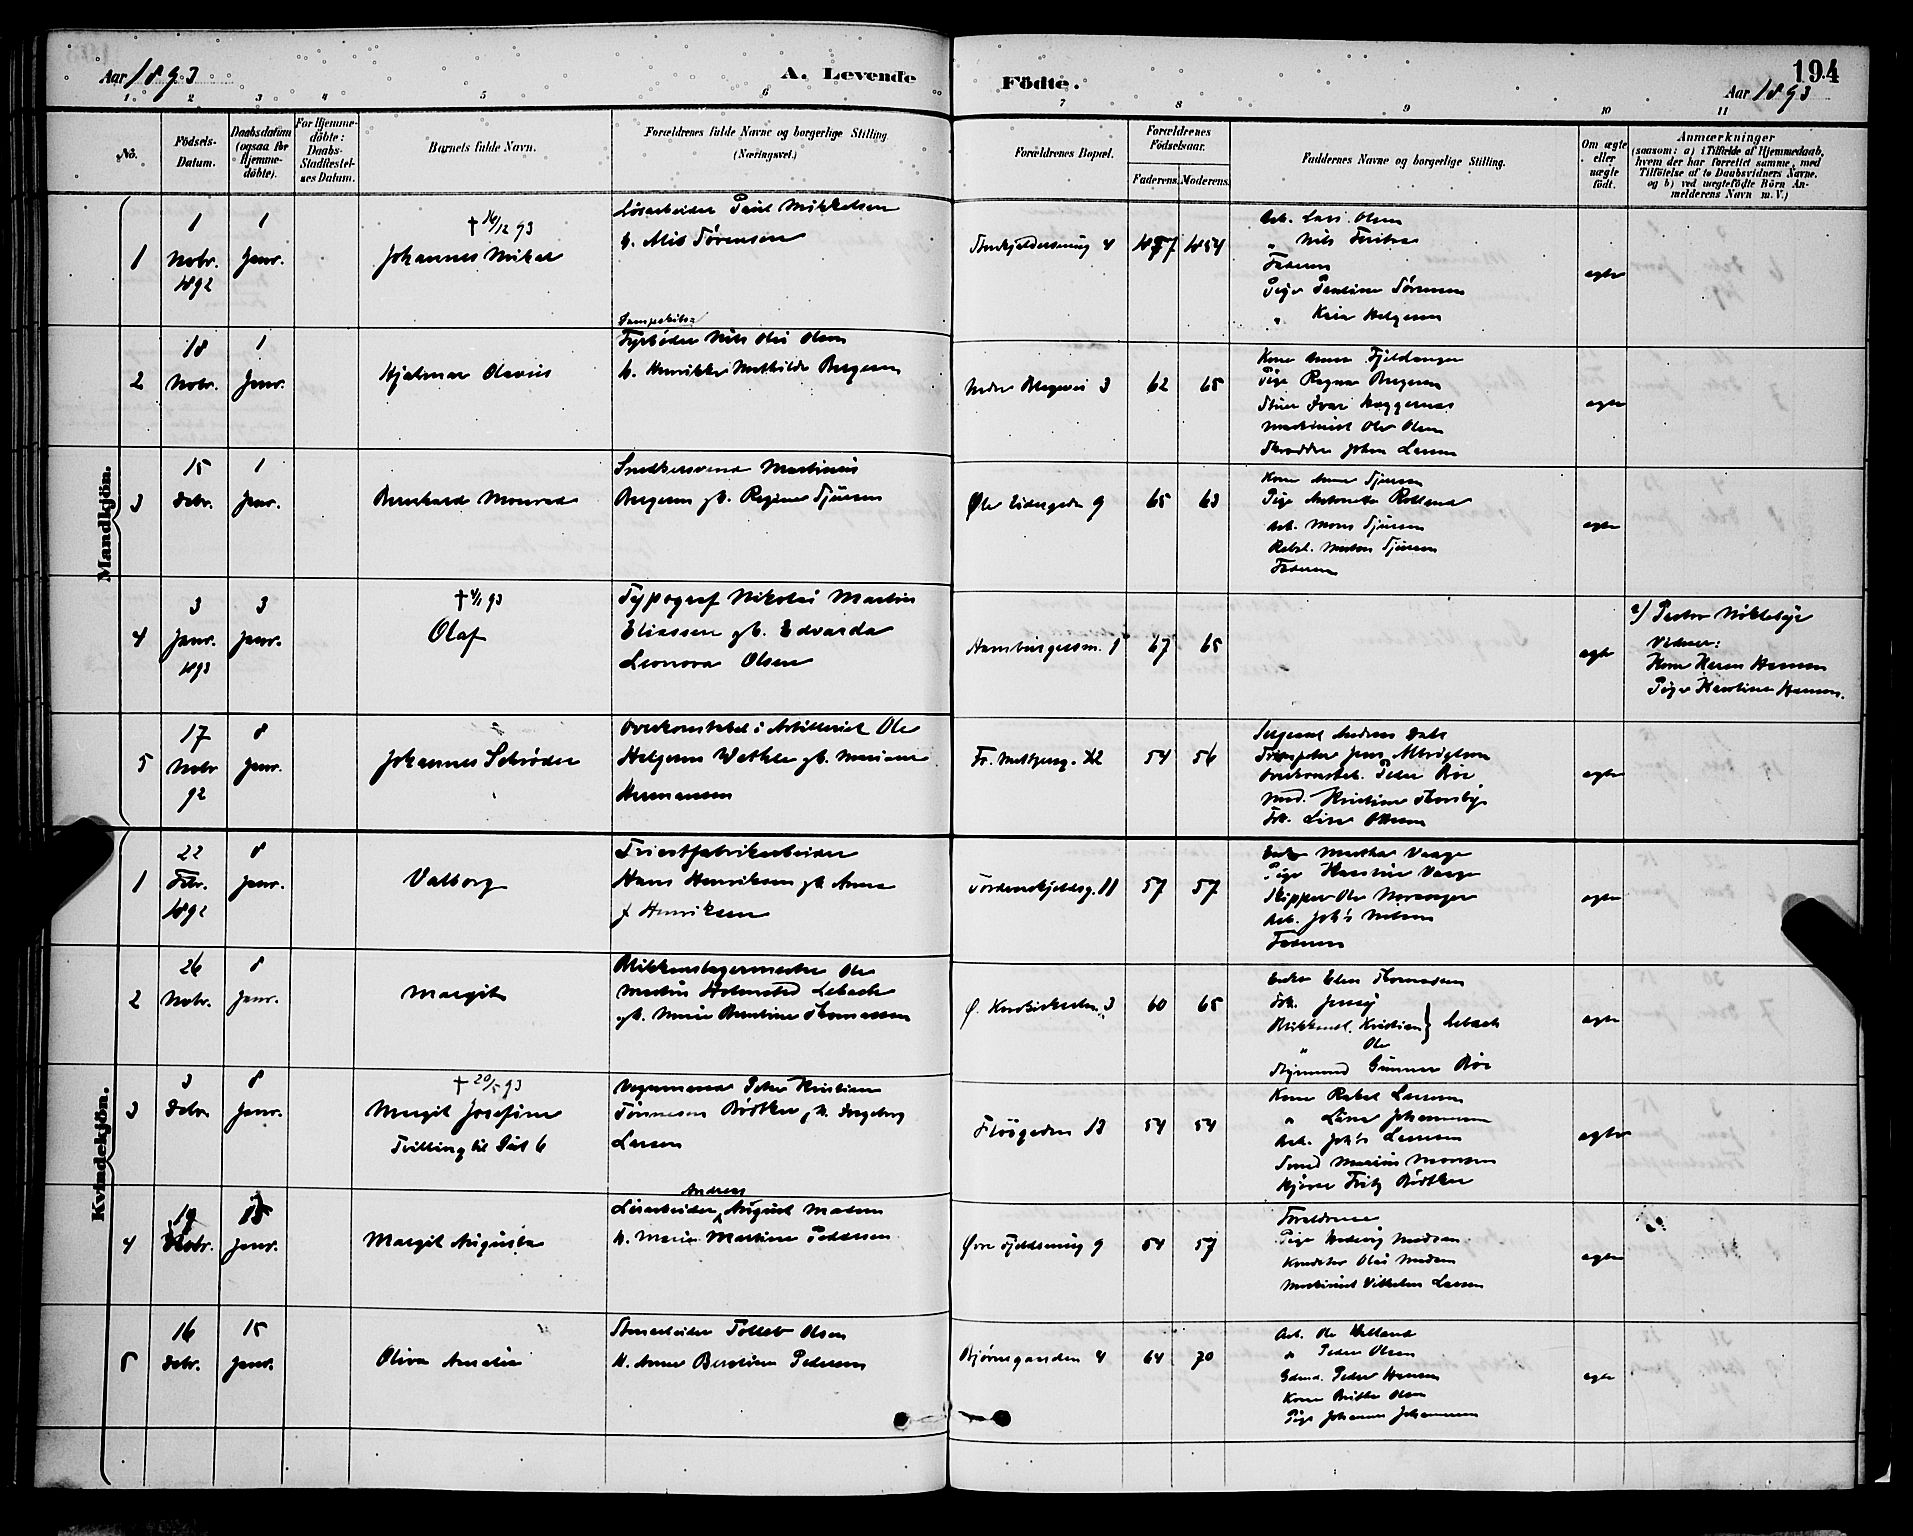 194
Aar 1893
A. Levende
Födte.
Aar 1893
1. 2 3 4 5 6 7 8 9 10 11
No.
Födsels-
Datum.
Daabsdatum
(ogsaa for
Hjemme-
döbte).
For Hjemme-
döbte:
Daabs-
Stadfæstel-
ses Datum.
Barnets fulde Navn.
Forældrenes fulde Navne og borgerlige Stilling.
(Næringsvei.)
Forældrenes Bopæl.
Forældrenes
Födselsaar.
Faderens. Moderens.
Faddernes Navne og borgerlige Stilling.
Om ægte
eller
uægte
födt.
Anmærkninger
(saasom: a) i Tilfælde af Hjemmedaab,
hvem der har forrettet samme, med
Tilföielse af to Daabsvidners Navne,
og b) ved uægtefödte Börn An-
melderens Navn m. V.)
Mandkjön.
1
1
Novbr.
1892
1
Janr.
† 14/12 93
Johannes Mikal
Løsarbeider Paul Mikkelsen
h. Sørensen
4
1857 1854
Arb. Lars Olsen
" Nils
Faderen
Pige Pauline Sørensen
" Helgesen
ægte
2
18
Novbr.
1
Janr.
Hjalmar Olavus
Dampskibs-
Fyrbøder Nils Olai Olsen
h. Henrikke Mathilde Bergesen
Nedre Blegevei 3
62 65
Kone Anna Fjeldanger
Pige Ragna Bergesen
Ivar
Maskinist Ole Olsen
Skrædder Johan Larsen
ægte
3
15
Debr.
1
Janr.
Bernhard Monrad
Snedkersvend Martinus
Bergesen gb. Regine Sjursen
9
65 63
Kone Anna Sjursen
Pige Antonette Rolland
Arb. Mons Sjursen
Sjursen
Faderen
ægte
4
3
Janr.
1893
3
Janr.
† 4/1 93
Olaf
Typograf Nikolai Martin
Eliassen gb. Edvarda
Leonora Olsen
Hamburgersm. 1
67 65
ægte
a) Pastor
Vidner:
Kone Karen Hansen
Pige Karoline Hansen.
5
17
Novbr
92
8
Janr.
Johannes Schrøder
Overkonstabel i Artilleriet Ole
Helgesen gb. Mariane
Hermansen
54 56
Sergeant Andreas Dahl
Trompeter Jens Albrigtsen
Overkonstab. Peder Bøe
Kristine
Frk. Lise Ottesen
ægte
Kvindekjön.
1
22
Febr.
1892
8
Janr.
Valborg
Hans Henriksen gb. Anna
f Henriksen
Tordenskjoldsg. 11
57 57
Enke Martha Vaage
Pige Vaage
Skipper Ole
Arb. Johs Nielsen
Faderen
ægte
2
26
Novbr.
8
Janr.
Margit
Blikkenslagermester Ole
Martin Holmsted Lebach
gb. Marie Berntine Thomassen
3
60 65
Enke Elen Thomassen
Frk. Jenny
Blikkensl. Kristian } Lebach
" Ole
Styrmand Gunnar Bøe
ægte
3
3
Debr.
8
Janr.
† 20/5 93
Margit Josefine
Tvilling til Pag 6
Vognmand Peter Kristian
Tønnesen Bødtker gb. Ingeborg
Larsen
54 54
Kone Rakel Larsen
" Line Johannesen
Arb. Johs Larsen
Smed Marius Monsen
Fritz Bødtker
ægte
4
19
Novbr.
15
Janr.
Margit Augusta
Andreas
Løsarbeider August Madsen
h. Marie Martine Pedersen
Øvre Fjeldsmug 9
54 57
Forældrene
Pige Hedevig Madsen
Konditor Olai Madsen
Maskinist Vilhelm Larsen
ægte
5
16
Debr.
15
Janr.
Oliva Amalia
Stenarbeider Tollev Olsen
h. Anna Berntine Pedersen
Bjørnsgaarden 4
64 70
Arb. Ole Helland
" Peder Olsen
Peder Hansen
Kone Brithe Olsen
Pige Johanna Johannesen
ægte